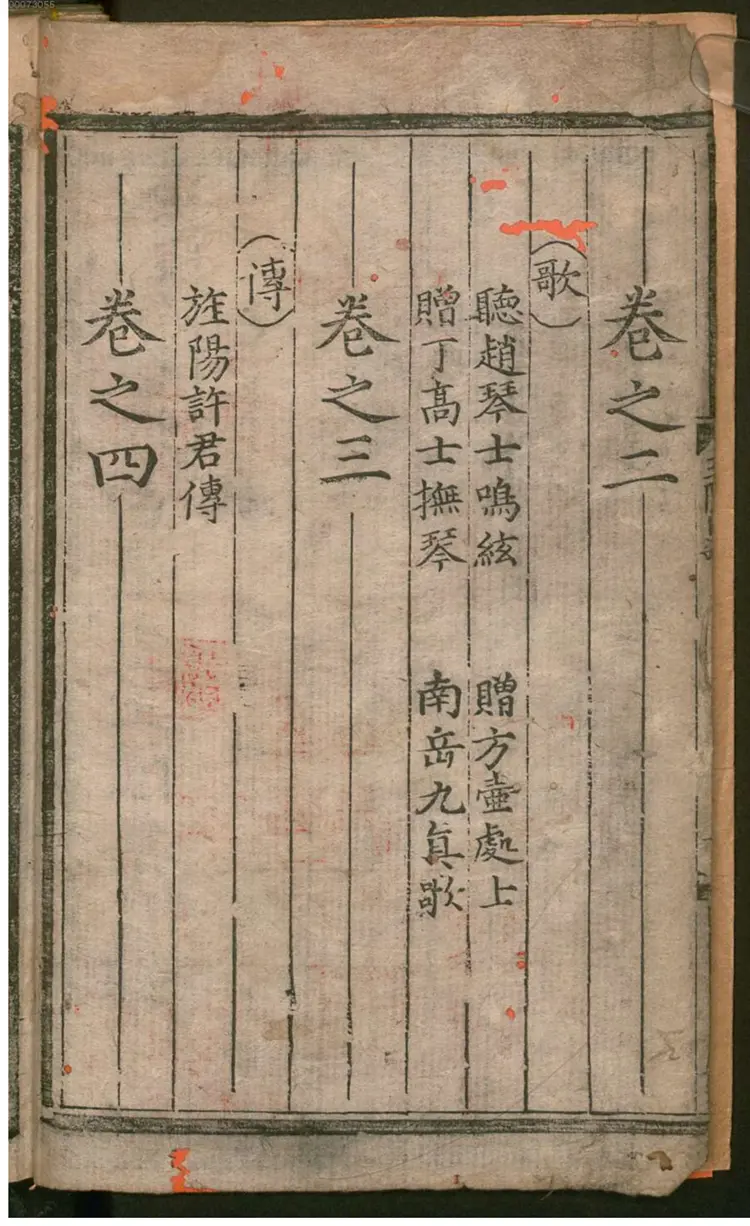 卷之二
(歌)
聽趙琴士鳴絃 贈方壺處士
贈丁高士撫琴 南岳九真歌
卷之三
(傳)
旌陽許君傳
卷之四
00073055